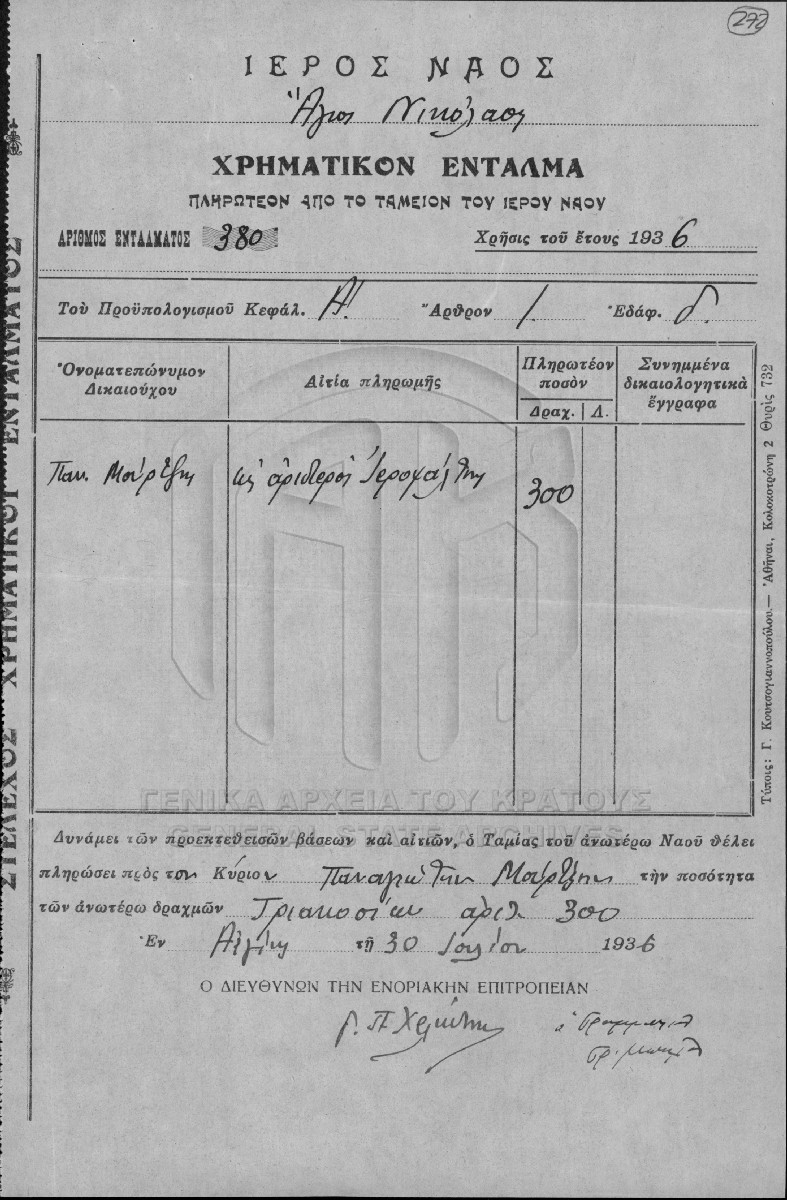 272
ΙΕΡΟΣ ΝΑΟΣ
Ἅγιος Νικόλαος
ΧΡΗΜΑΤΙΚΟΝ ΕΝΤΑΛΜΑ
ΠΛΗΡΩΤΕΟΝ ΑΠΟ ΤΟ ΤΑΜΕΙΟΝ ΤΟΥ ΙΕΡΟΥ ΝΑΟΥ
ΑΡΙΘΜΟΣ ΕΝΤΑΛΜΑΤΟΣ 380 Χρῆσις τοῦ ἔτους 1936
Τοῦ Προϋπολογισμοῦ Κεφάλ. Α! Ἄρθρον 1. Ἐδάφ. δ.
Ὀνοματεπώνυμον Δικαιούχου
Αἰτία πληρωμῆς
Πληρωτέον ποσὸν
Δραχ. Λ.
Συνημμένα δικαιολογητικὰ ἔγγραφα
Παν. Μούρτζης ἀριστερὸς Ἱεροψάλτης 300
ΓΕΝΙΚΑ ΑΡΧΕΙΑ ΤΟΥ ΚΡΑΤΟΥΣ
GENERAL STATE ARCHIVES
Δυνάμει τῶν προεκτεθεισῶν βάσεων καὶ αἰτιῶν, ὁ Ταμίας τοῦ ἀνωτέρω Ναοῦ θέλει
πληρώσει πρὸς τον Κύριον Παναγιώτην Μούρτζην τὴν ποσότητα
τῶν ἀνωτέρω δραχμῶν Τριακοσίων ἀριθ 300
Ἐν Αἰγίνῃ τῇ 30 Ἰουλίου 1936
Ο ΔΙΕΥΘΥΝΩΝ ΤΗΝ ΕΝΟΡΙΑΚΗΝ ΕΠΙΤΡΟΠΕΙΑΝ
Γ. Π.
ΣΤΕΛΕΧΟΣ ΧΡΗΜΑΤΙΚΟΥ ΕΝΤΑΛΜΑΤΟΣ
Τύποις: Γ. Κουτσογιαννοπούλου.— Ἀθῆναι, Κολοκοτρώνη 2 Θυρὶς 732